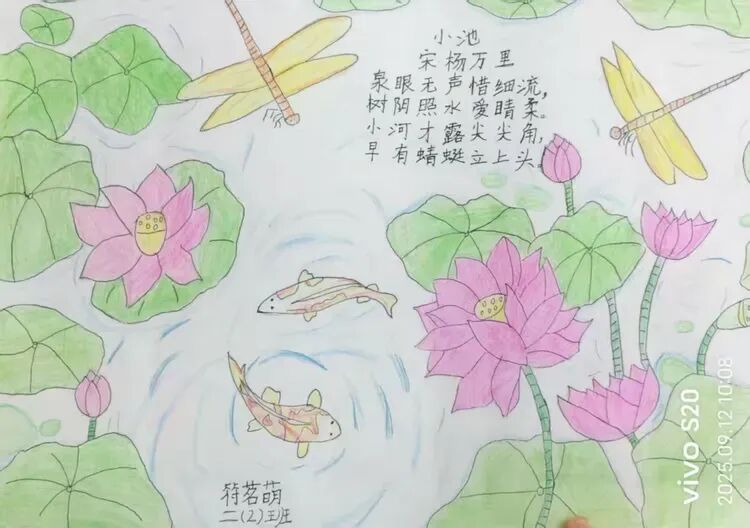 小池
宋杨万里
泉眼无声惜细流,
树阴照水爱晴柔。
小河才露尖尖角,
早有蜻蜓立上头。
符茗萌
二(2)班
vivo S20
2025.09.12 10:08